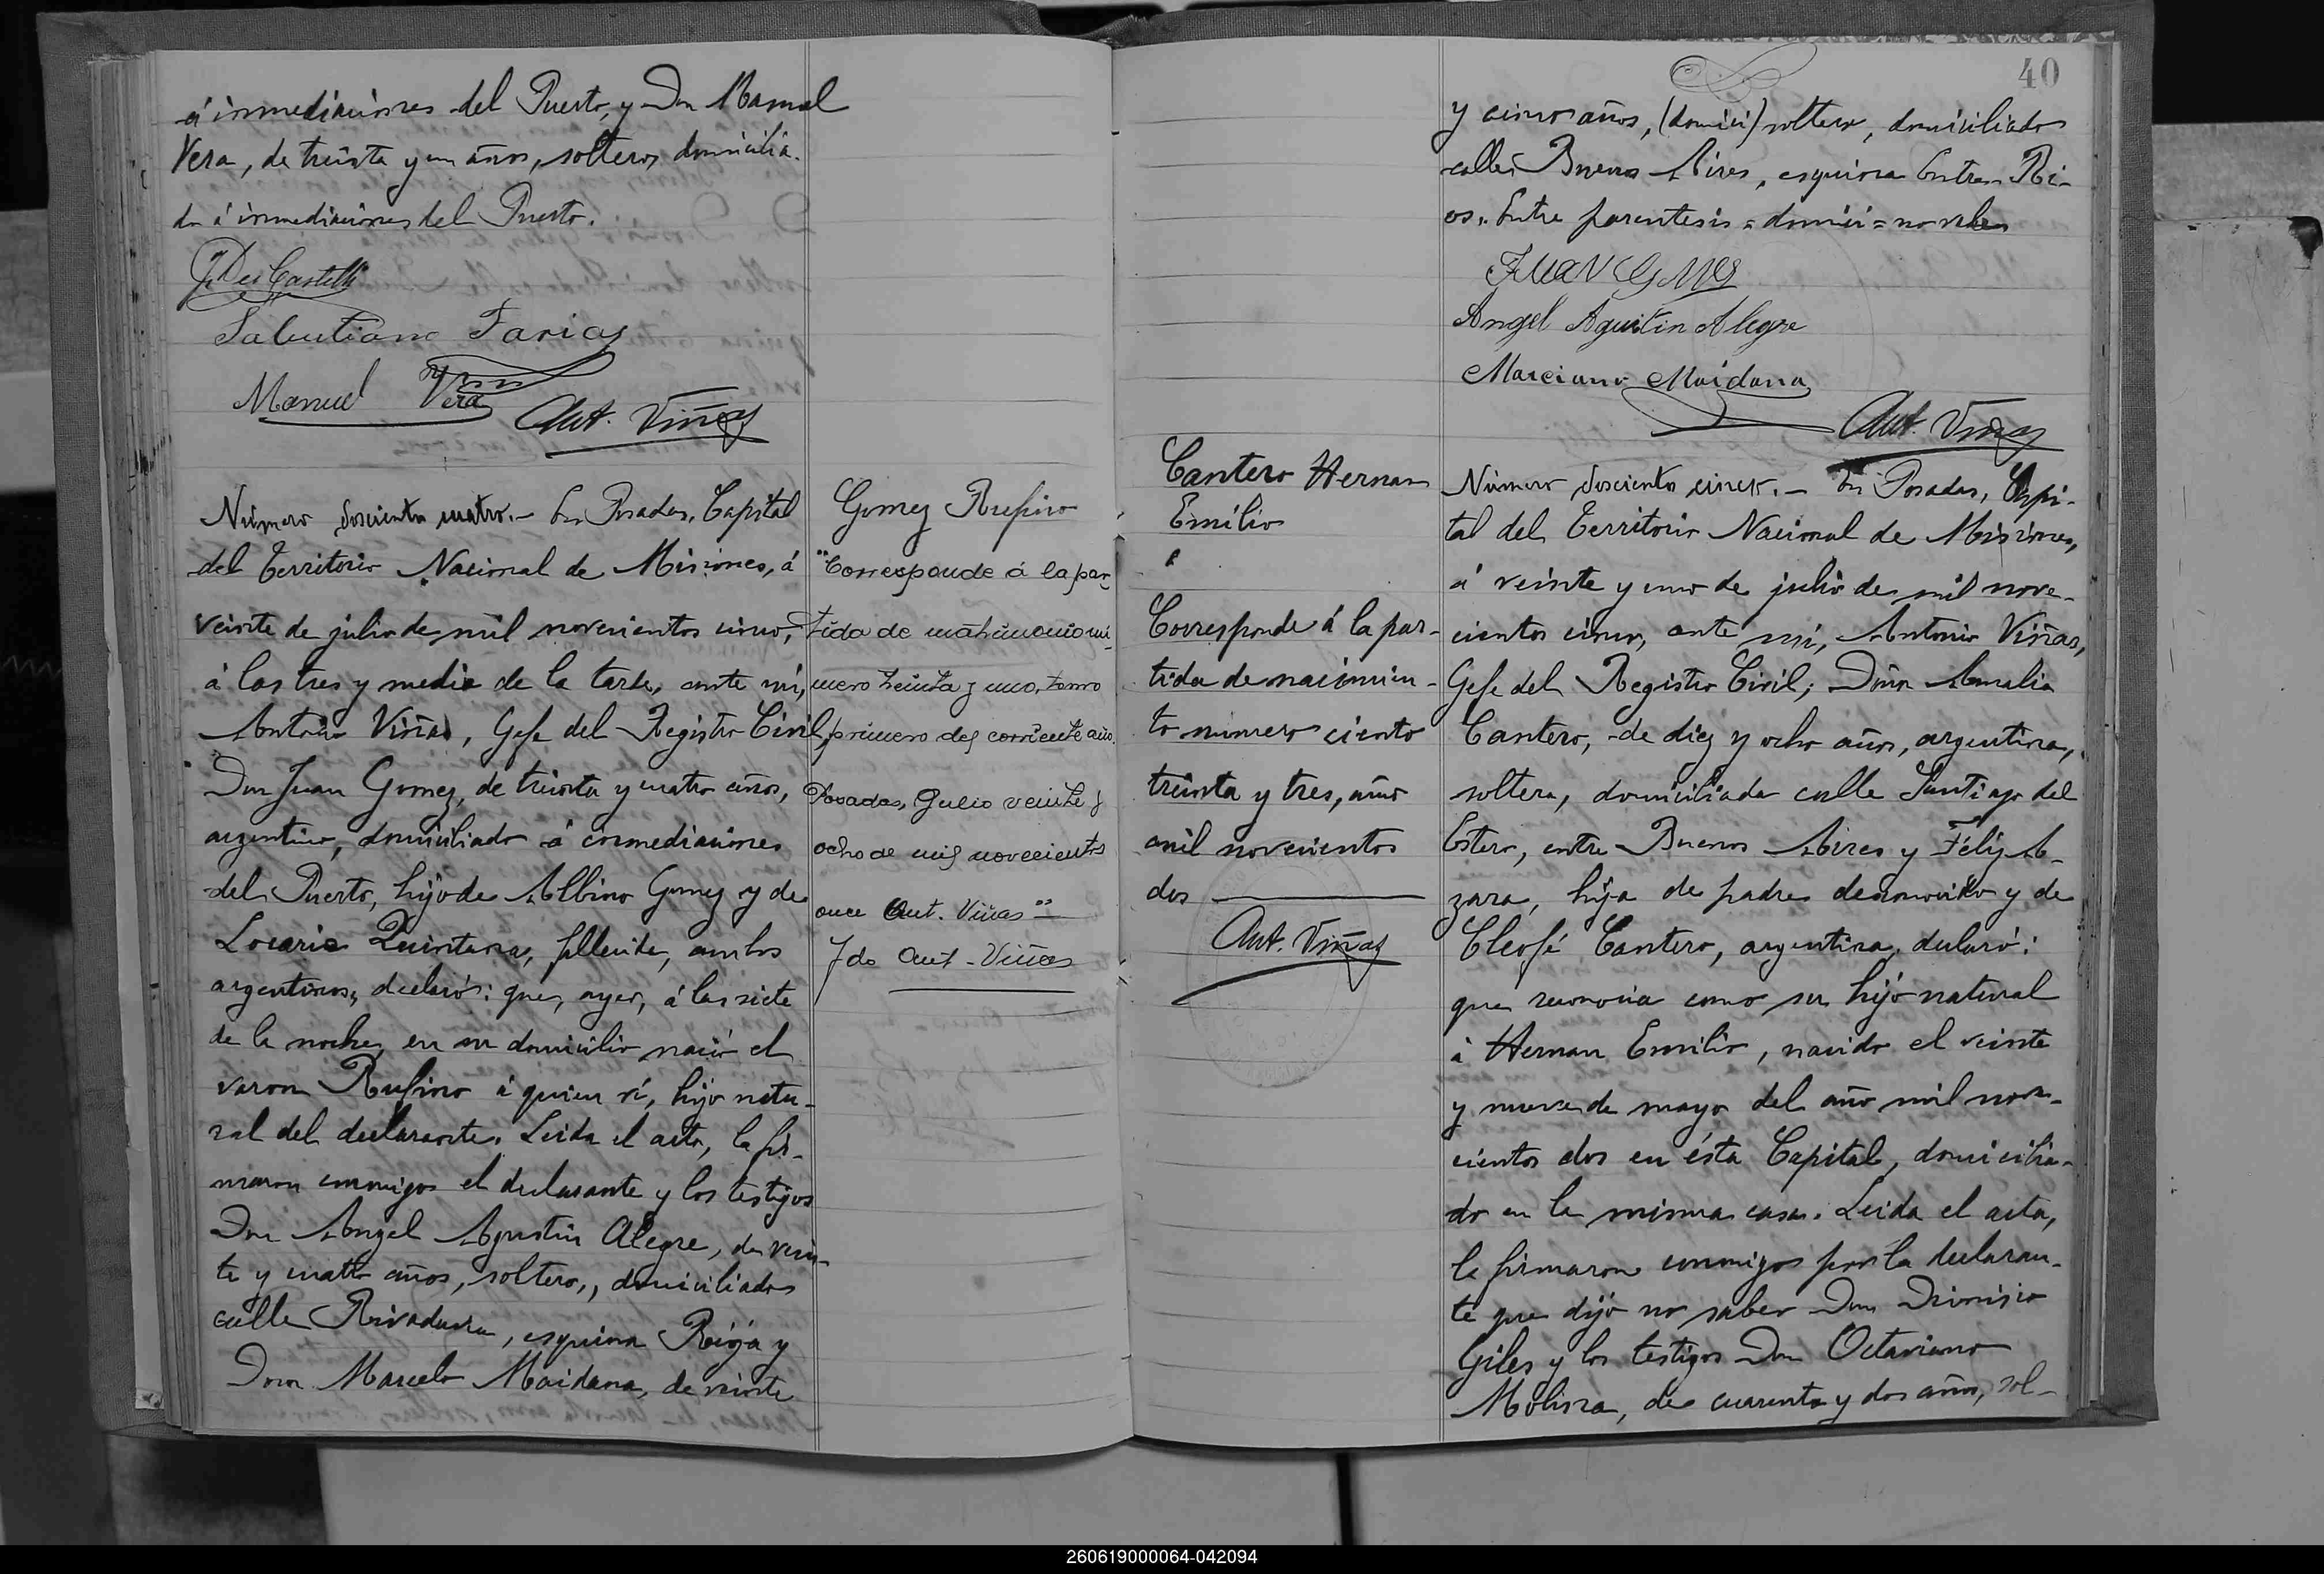 á inmediaciones del Puerto, y Don Manuel
Vera, de treinta y un años, soltero, domicilia-
do á inmediaciones del Puerto.
Salutiano Farias
Manuel Vera
Ant. Viñas
Número doscientos cuatro.- En Posadas, Capital
del Territorio Nacional de Misiones, á
veinte de julio de mil novecientos cinco,
á las tres y media de la tarde, ante mí,
Antonio Viñas, Gefe del Registro Civil,
Don Juan Gomez, de treinta y cuatro años,
argentino, domiciliado á inmediaciones
del Puerto, hijo de Albino Gomez y de
Locaria Quintana, fallecida, ambos
argentinos, declaró: que, ayer, á las siete
de la noche, en su domicilio nació el
varon Rufino á quien ví, hijo natu-
ral del declarante. Leida el acta, la fir-
maron conmigo el declarante y los testigos
Don Angel Agustin Alegre, de vein-
te y cuatro años, soltero, domiciliado
calle Rivadavia, esquina Rioja y
Don Marcelo Maidana, de veinte
Gomez Rufino
"Corresponde á la par-
tida de matrimonio nú-
mero treinta y uno, tomo
primero del corriente año.
Posadas, Julio veinte y
ocho de mil novecientos
once Ant. Viñas"
Fdo Ant. Viñas
40
y cinco años, (domici) soltero, domiciliado
calle Buenos Aires, esquina Entre Ri-
os. Entre parentesis = domici = no vale
JUAN GMES
Angel Agustin Alegre
Marciano Maidana
Ant. Viñas
Cantero Hernan
Emilio
Corresponde á la par-
tida de nacimien-
to número ciento
treinta y tres, año
mil novecientos
dos
Ant. Viñas
Número doscientos cinco.- En Posadas, Capi-
tal del Territorio Nacional de Misiones,
á veinte y uno de julio de mil nove-
cientos cinco, ante mí, Antonio Viñas,
Gefe del Registro Civil; Doña Amalia
Cantero, de diez y ocho años, argentina,
soltera, domiciliada calle Santiago del
Estero, entre Buenos Aires y Félix A-
zara, hija de padre desconocido y de
Cleofé Cantero, argentina, declaró:
que reconocia como su hijo natural
á Hernan Emilio, nacido el veinte
y nueve de mayo del año mil nove-
cientos dos en ésta Capital, domicilia-
do en la misma casa. Leida el acta,
la firmaron conmigo por la declaran-
te que dijo no saber Don Dionisio
Giles y los testigos Don Octaviano
Molina, de cuarenta y dos años, sol-
260619000064-042094